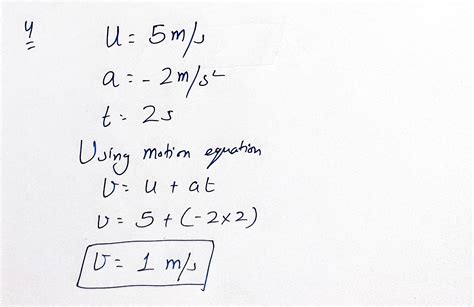 4
u = 5 m/s
a = - 2 m/s²
t = 2s
Using motion equation
v = u + at
v = 5 + (-2×2)
v = 1 m/s